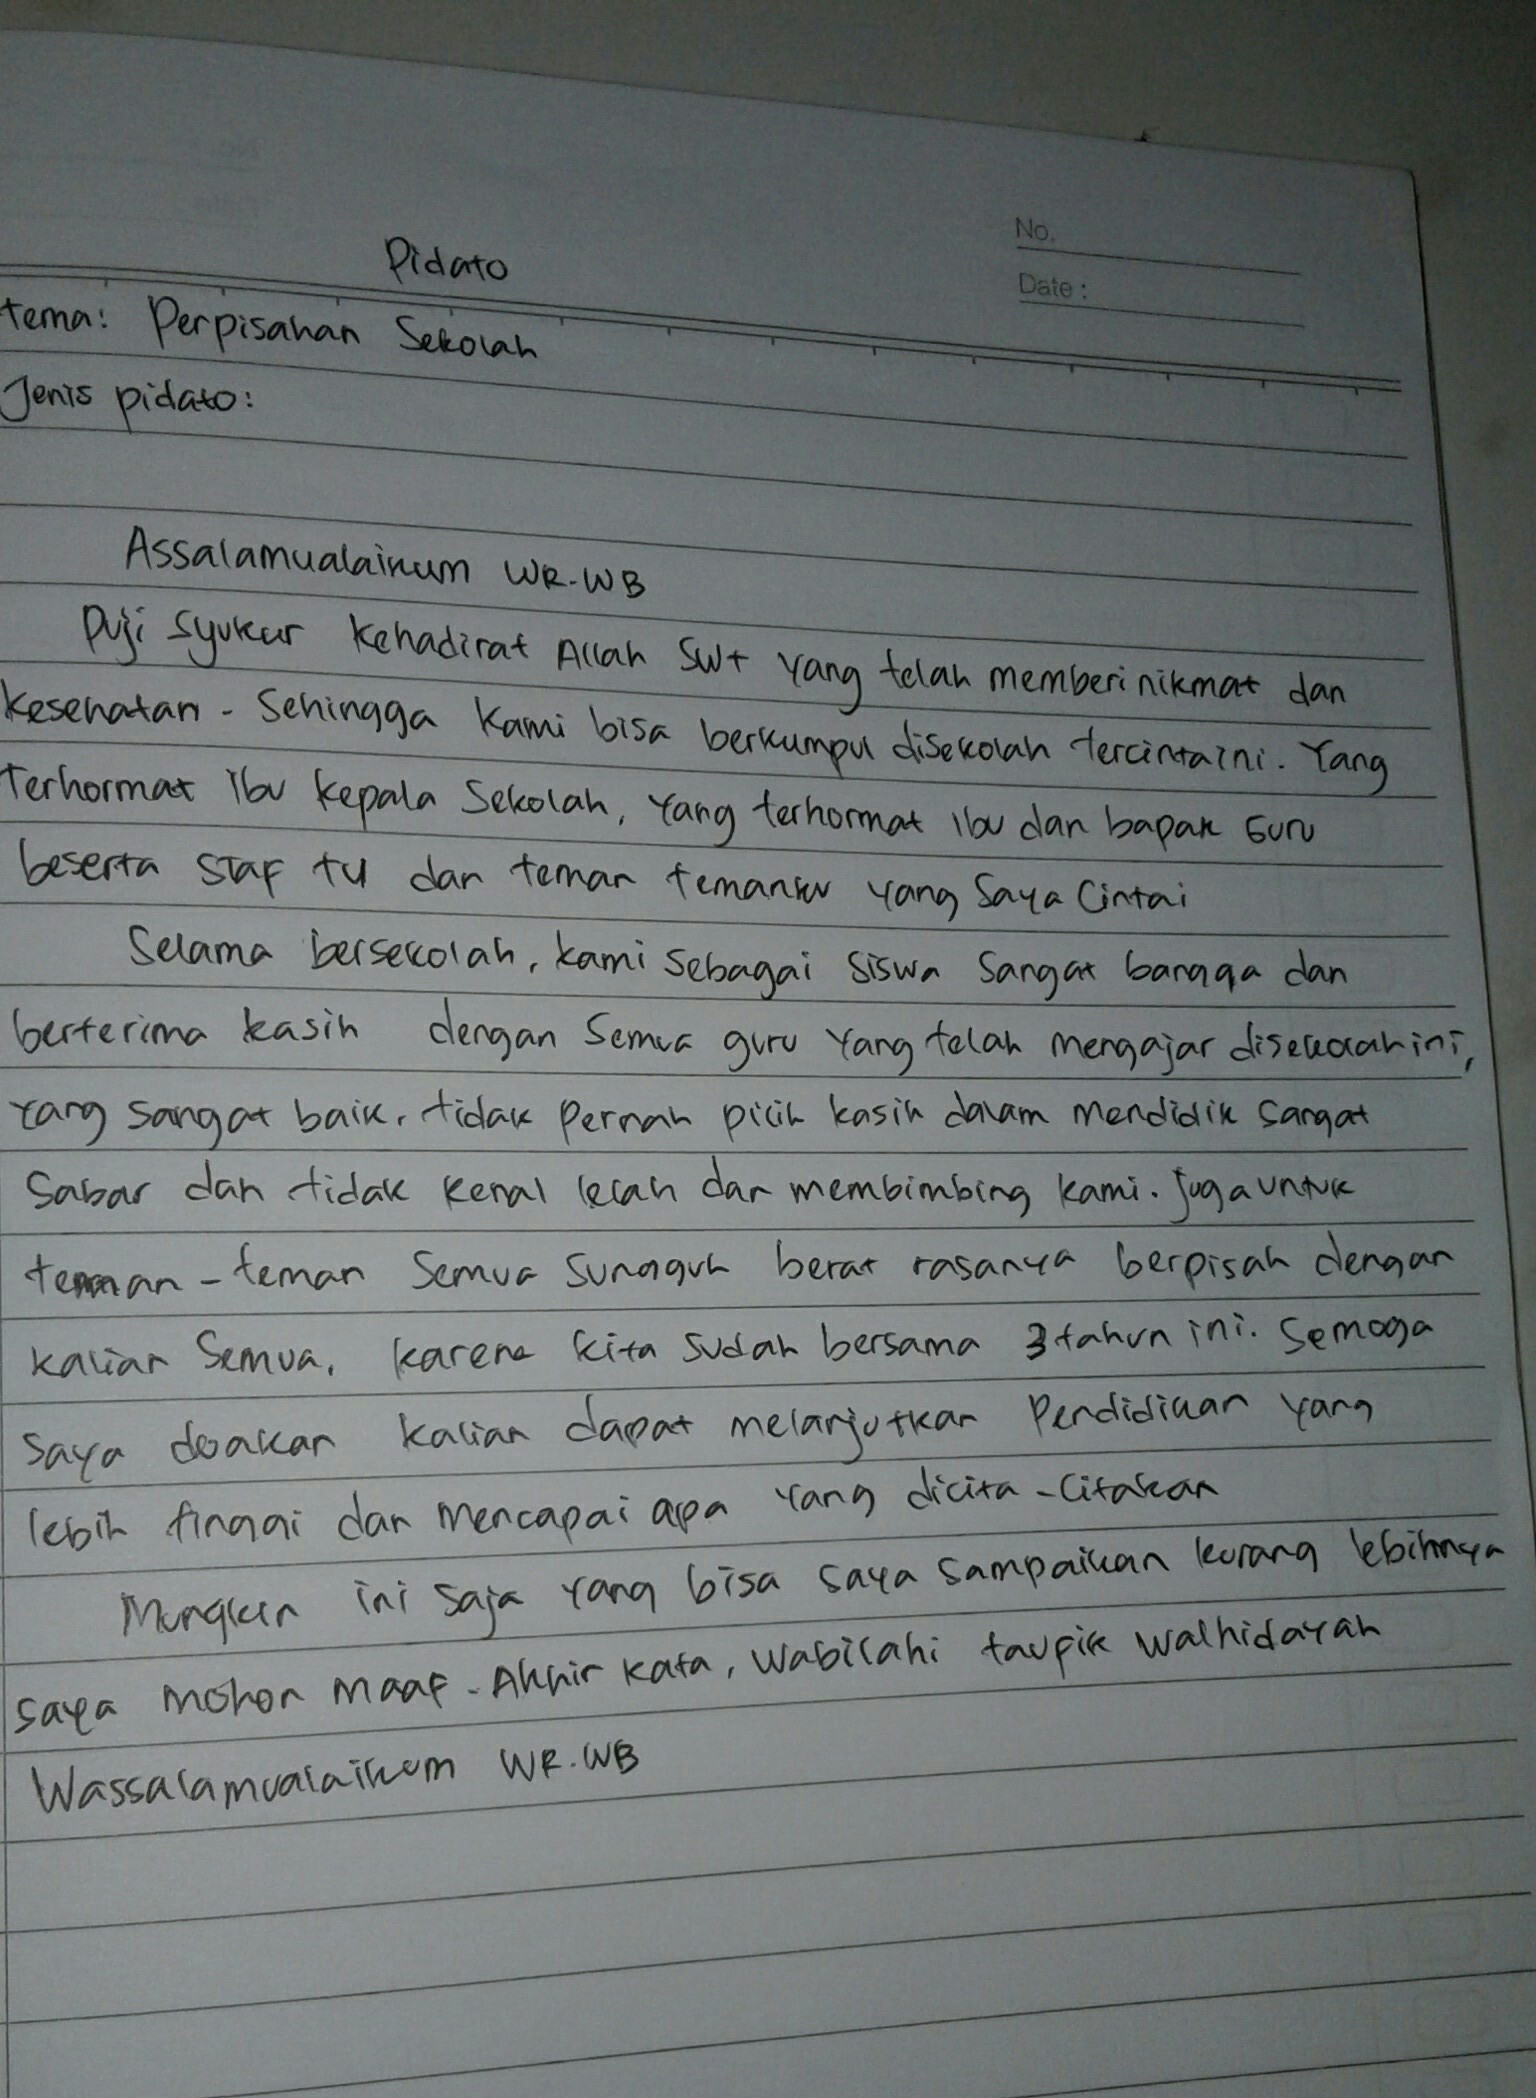 No.
Date:
Pidato
tema: Perpisahan Sekolah
Jenis pidato:
Assalamualaikum WR.WB
Puji syukur kehadirat Allah SWT yang telah memberi nikmat dan
kesehatan. Sehingga kami bisa berkumpul disekolah tercinta ini. Yang
Terhormat Ibu kepala Sekolah, Yang terhormat Ibu dan bapak Guru
beserta staf TU dan teman temanku yang Saya Cintai
Selama bersekolah, kami sebagai siswa sangat bangga dan
berterima kasih dengan semua guru yang telah mengajar disekolah ini,
yang sangat baik, tidak pernah pilih kasih dalam mendidik sangat
sabar dan tidak kenal lelah dan membimbing kami. Juga untuk
teman-teman semua sungguh berat rasanya berpisah dengan
kalian semua, karena kita sudah bersama 3 tahun ini. Semoga
saya doakan kalian dapat melanjutkan pendidikan yang
lebih tinggi dan mencapai apa yang dicita-citakan
Mungkin ini saja yang bisa saya sampaikan kurang lebihnya
saya mohon maaf. Akhir kata, wabilahi taupik walhidayah
Wassalamualaikum WR.WB